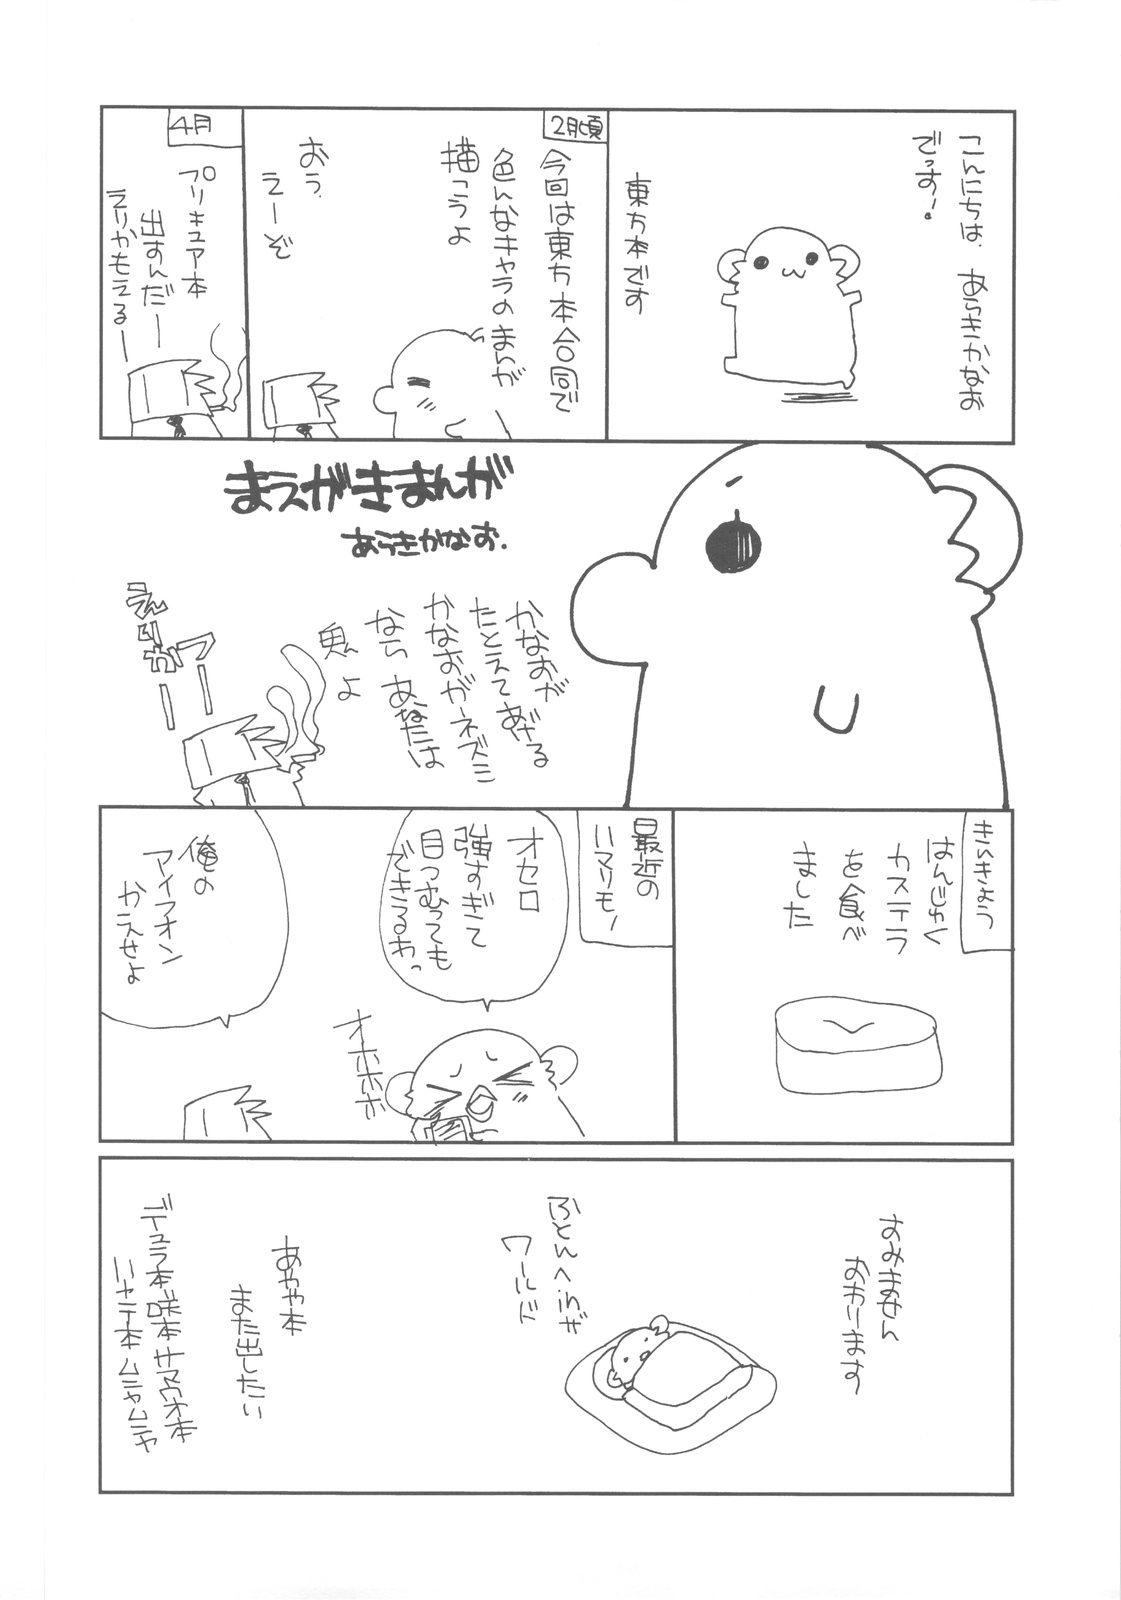 こんにちは、あらきかなお
でっす！
東方本です
2月頃
今回は東方本合同で
色んなキャラのまんが
描こうよ
おう、
えーぞ
4月
プリキュア本
出すんだー
えりかもえるー
まえがきまんが
あらきかなお.
かなおが
たとえてあげる
かなおがネズミ
なら あなたは
魚よ
えりかー
つー
きんきょう
はんじゅく
カステラ
を食べ
ました
最近の
ハマリモノ
オセロ
強すぎて
目つむっても
できるわっ
オホホホホ
俺の
アイフォン
かえせよ
すみません
おわります
ふとんへinザ
ワールド
あやや本
また出したい
デュラ本、咲本、サマウォ本
ハヤテ本 ムニャムニャ